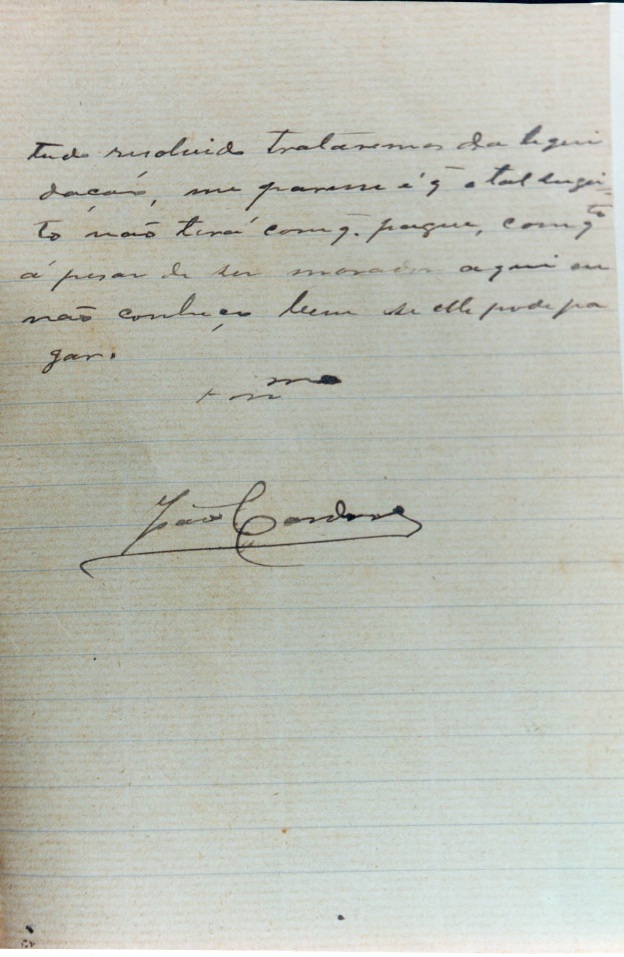 tudo resolvido trataremos da liqui
dação, me paresse é q̃ o tal sugi-
to não terá com q̃. pague, com q̃to
á pesar de ser morador aqui eu
não conheço bem se elle pode pa
gar.
João Cardoso